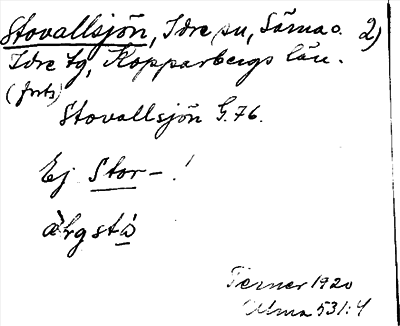 Stovallsjön, Idre sn, Särna o. 2)
Idre tg, Kopparbergs län.
(forts)
Stovallsjön G.76.
Ej Stor- !
Terner 1920
Ulma 531:4